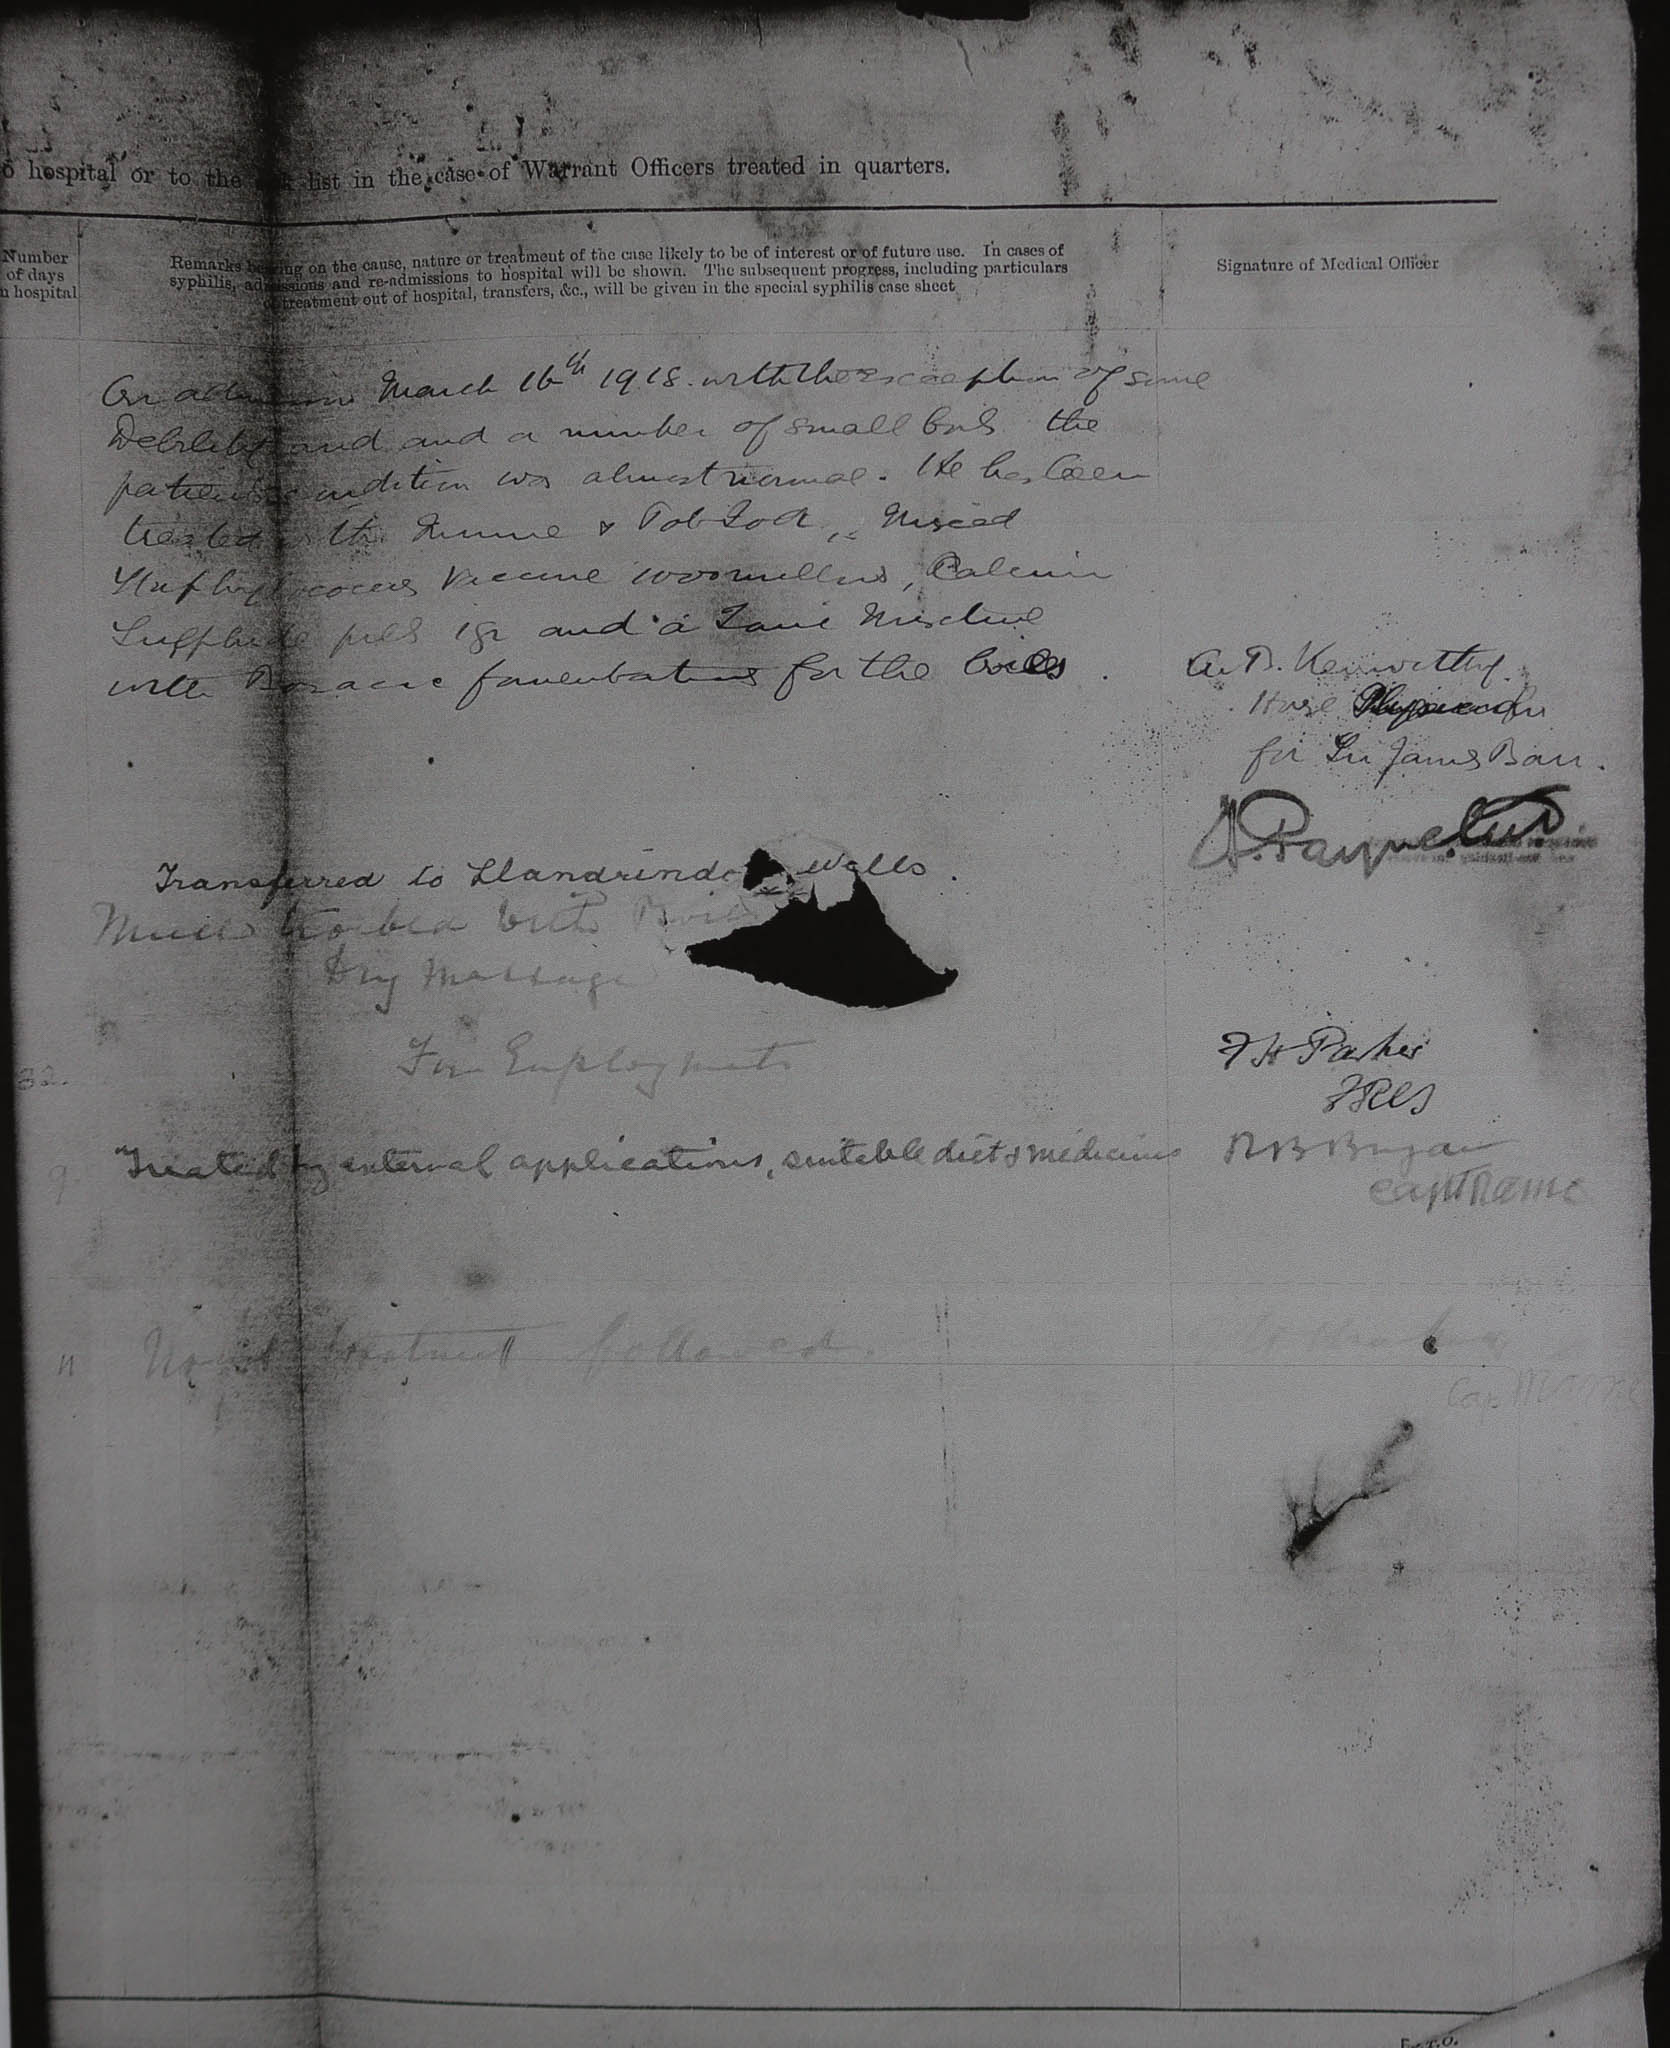 o hospital or to the sick list in the case of Warrant Officers treated in quarters.
Number
of days
n hospital
Remarks bearing on the cause, nature or treatment of the case likely to be of interest or of future use. In cases of
syphilis, admissions and re-admissions to hospital will be shown. The subsequent progress, including particulars
of treatment out of hospital, transfers, &c., will be given in the special syphilis case sheet
Signature of Medical Officer
On admission March 16th 1918. with the exception of some
Debility and and a number of small boils the
patients condition was almost normal. He has been
treated with Quinine & Pot Iod, Mixed
Staphylococcus Vaccine 1000 millions, Calcium
Sulphide pills 1gr and a Tonic Mixture
with Boracic fomentations for the boils.
A. B. Kenworthy.
House Physician
for Sir James Barr.
A. Payne.
Transferred to Llandrindod Wells.
Much troubled with Boils
Dry Massage
For Employment
32.
F H Parker
FRCS
9.
Treated by external applications, suitable diet & medicine
R B Bryan
Capt RAMC
11
treatment followed.
Cap
P.T.O.